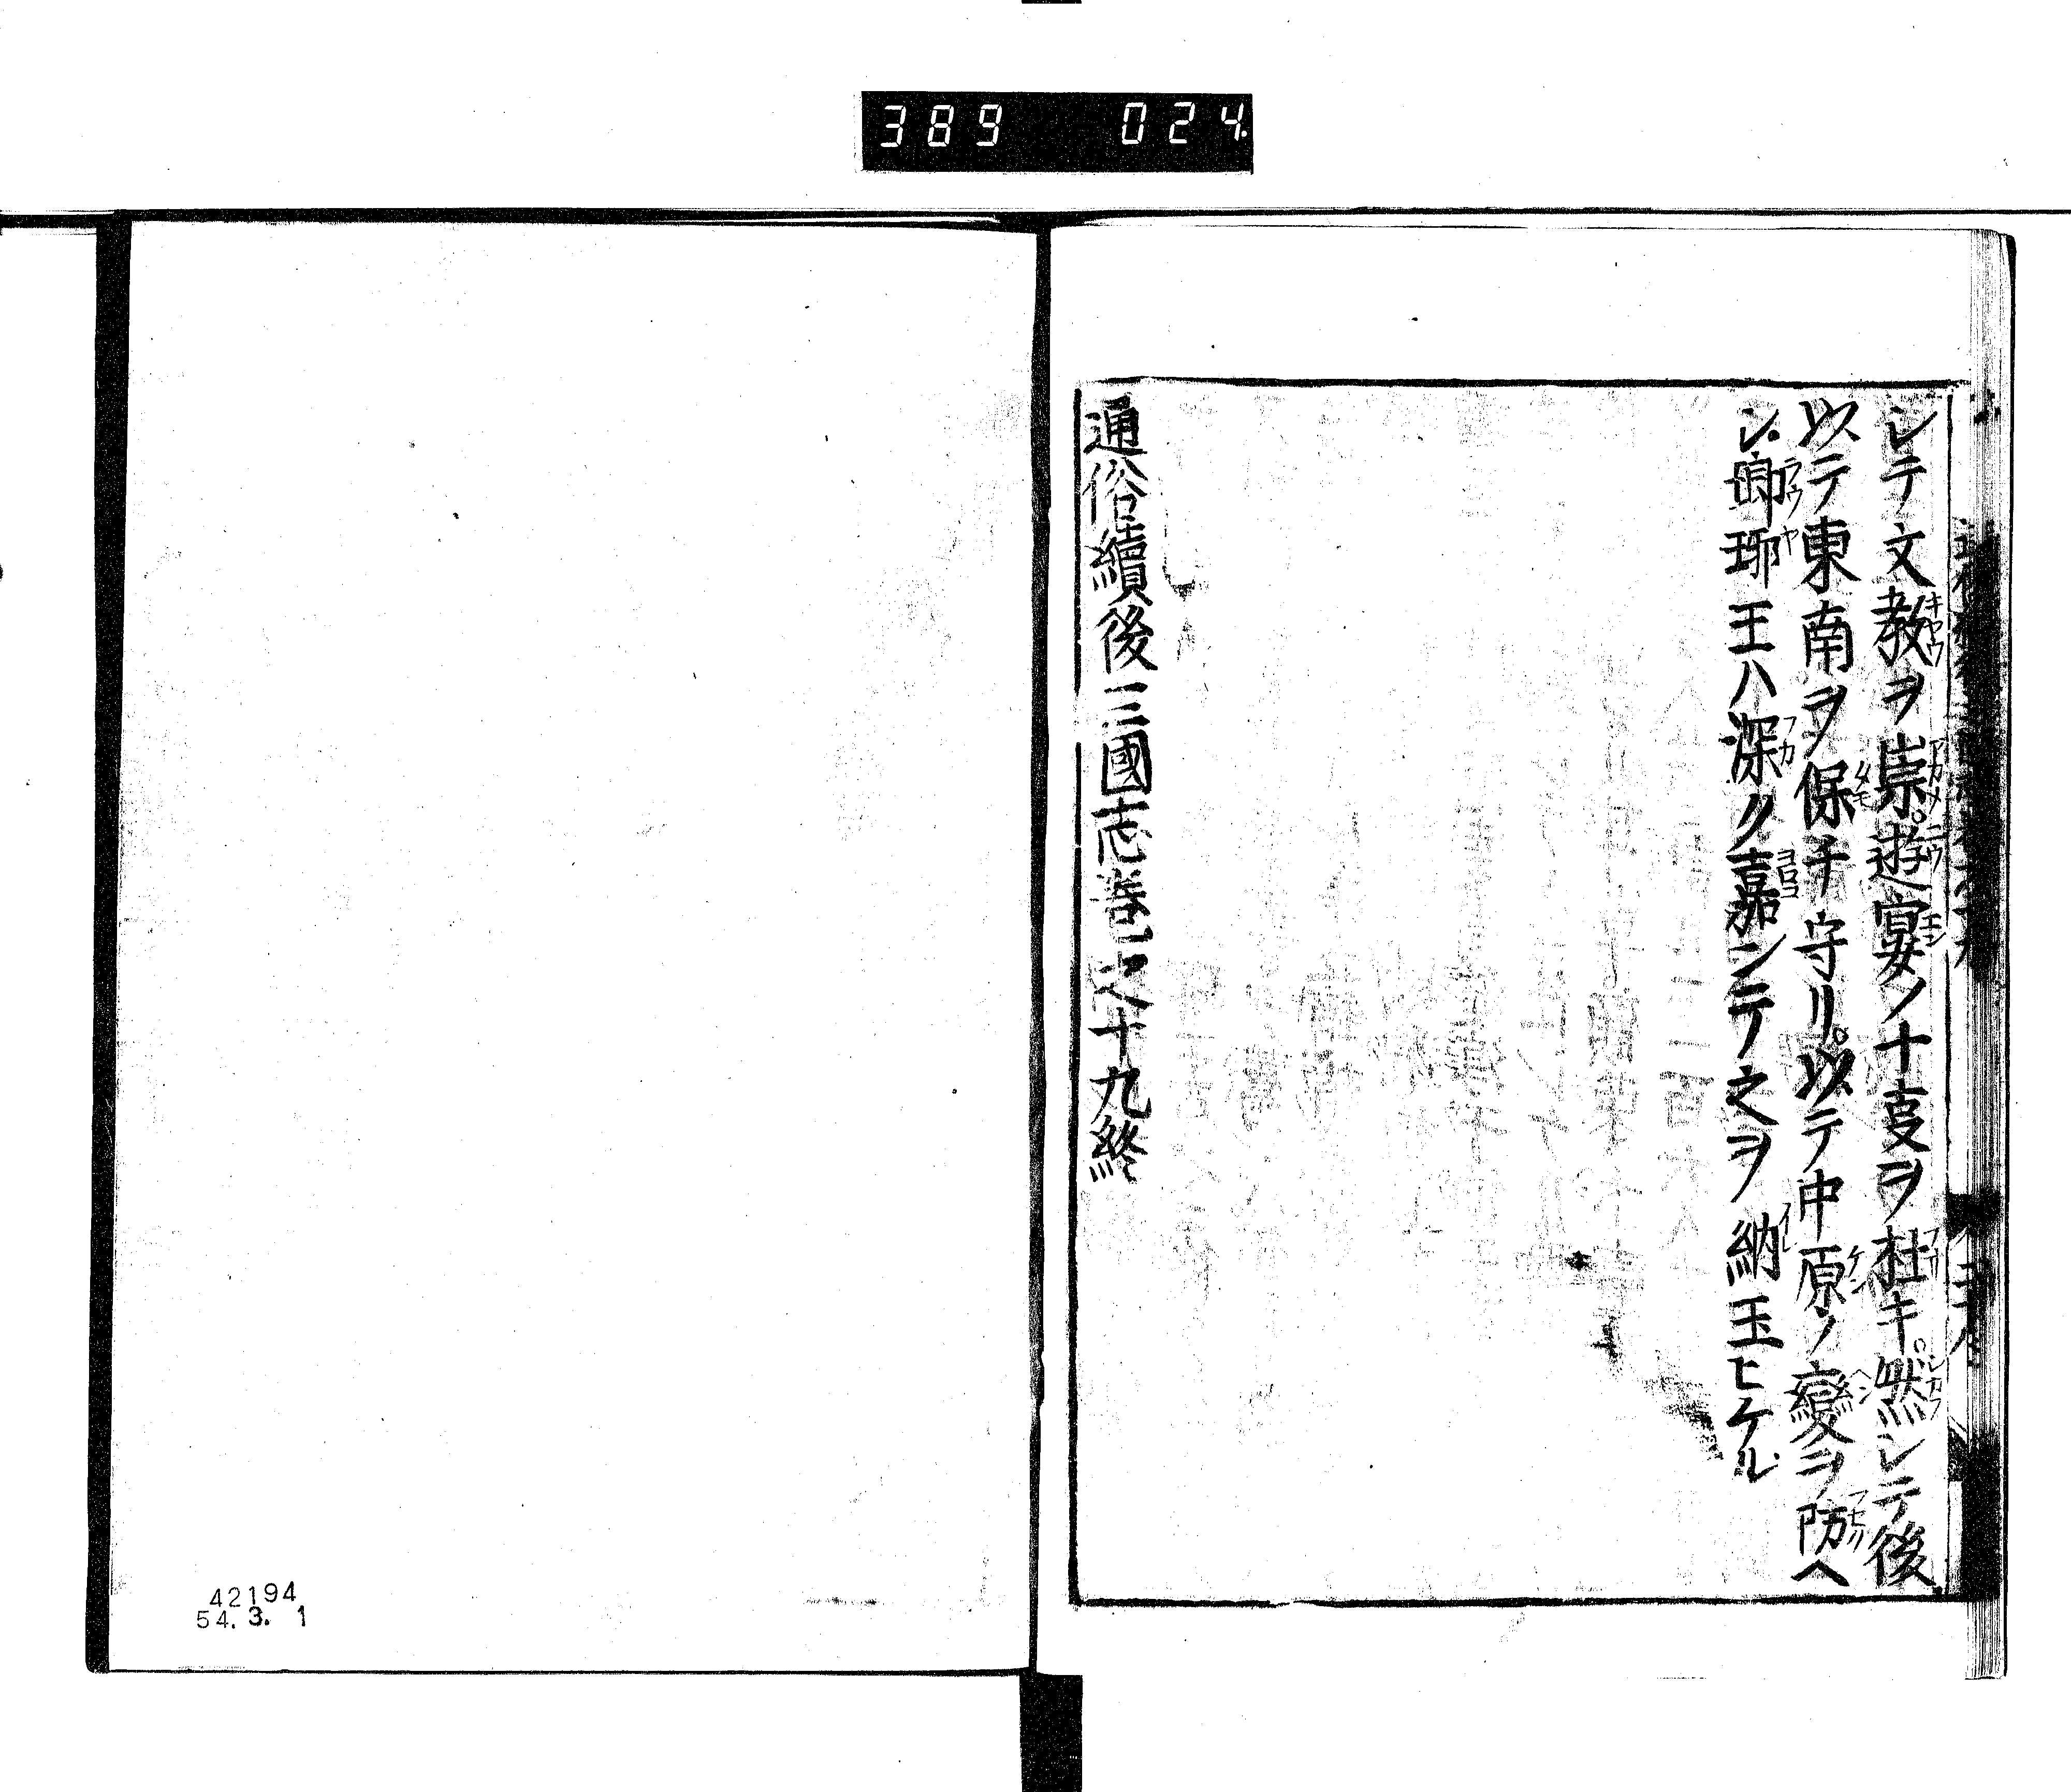 389 024.
シテ文教ヲ崇。遊宴ノ十𡕥ヲ杜キ。然シテ後
以テ東南ヲ保チ守リ。以テ中原ノ變ヲ防ヘ
シ。瑯琊王ハ深ク嘉ンテ之ヲ納玉ヒケル
通俗續後三國志卷之十九終
42194
54.3. 1